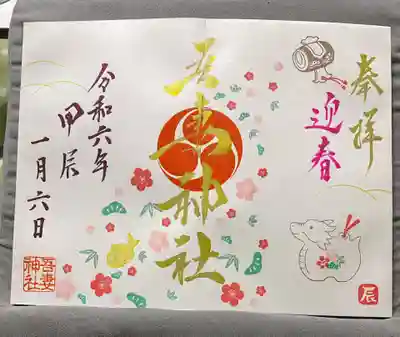 奉拝
迎春
辰
吾妻神社
令和六年
甲辰
一月六日
吾妻
神社